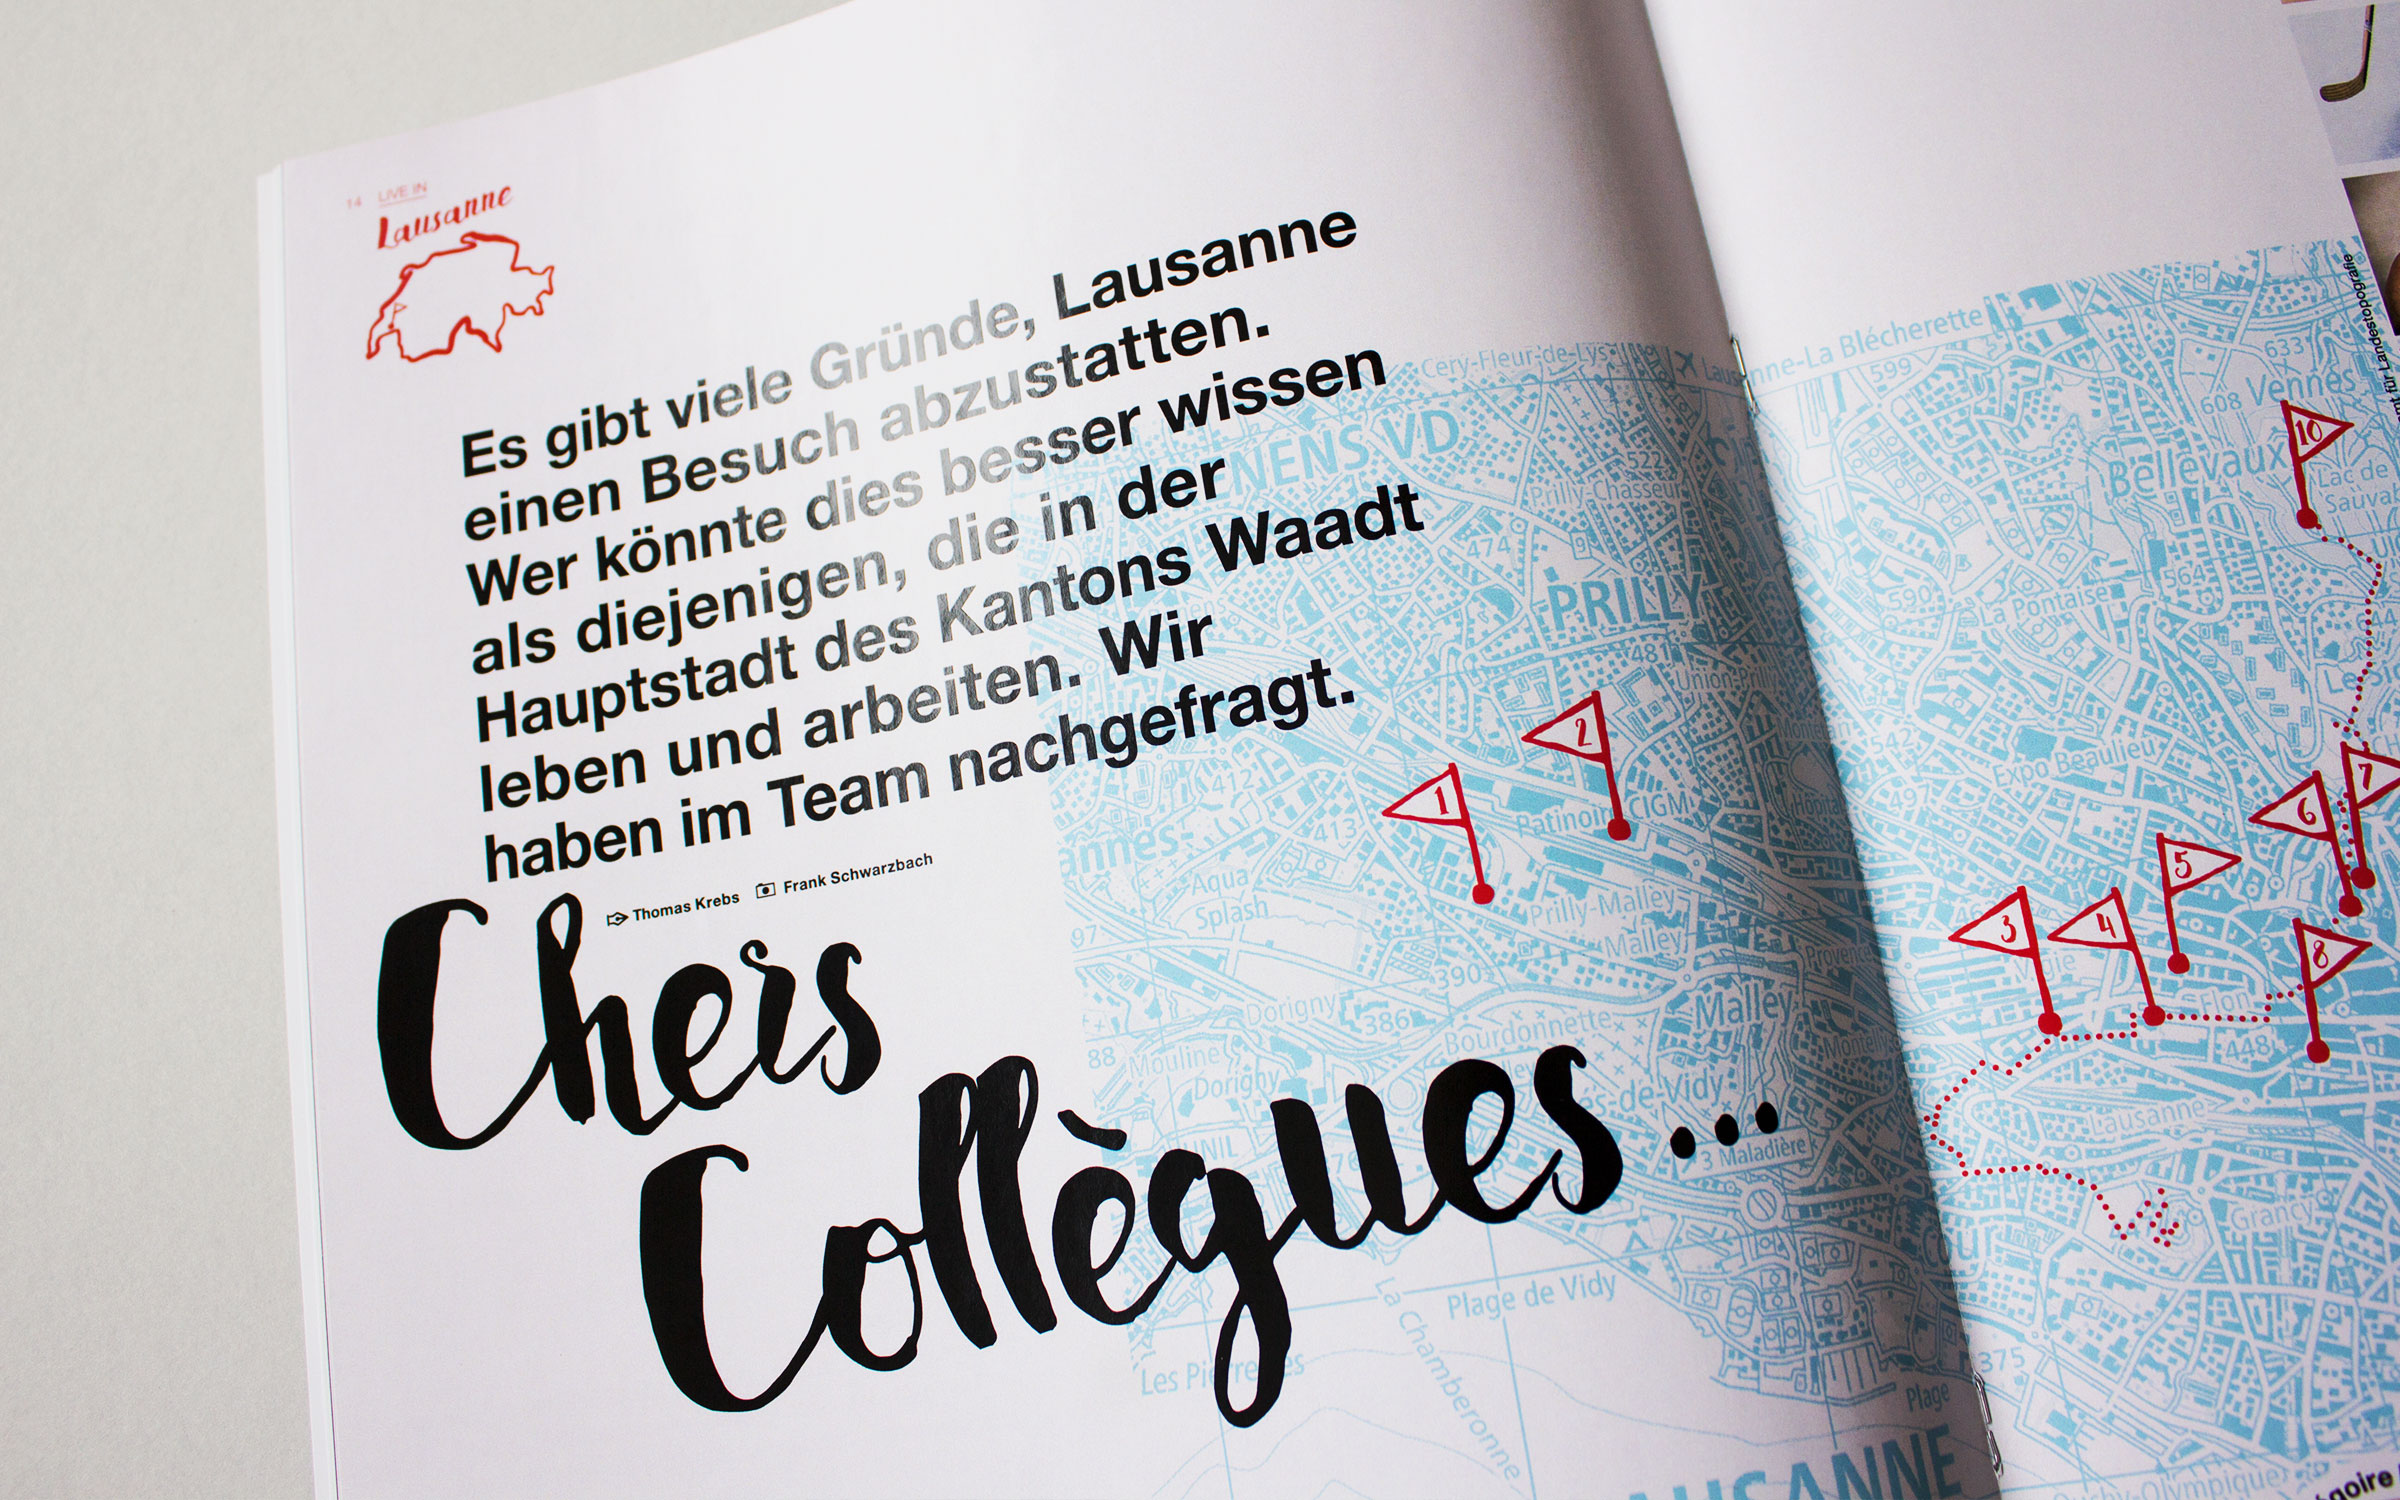 14 LIVE IN
Lausanne
Es gibt viele Gründe, Lausanne
einen Besuch abzustatten.
Wer könnte dies besser wissen
als diejenigen, die in der
Hauptstadt des Kantons Waadt
leben und arbeiten. Wir
haben im Team nachgefragt.
Thomas Krebs Frank Schwarzbach
Chers
Collègues...
Cery-Fleur-de-Lys
Lausanne-La Blécherette
599
633
Vennes
608
10
Bellevaux
Lac de
Sauva
für Landestopografie
NENS VD
522
Prilly-Chasseur
474
PRILLY
481
Union-Prilly
La Pontaise
590
564
542
Expo Beaulieu
412
413
1
2
CIGM
Patinoire
Aqua
Splash
Prilly-Malley
Malley
Provence
390
97
Dorigny
386
Bourdonnette
Malley
88
Mouline
Dorigny
UNIL
-de-Vidy
Maladière
3
4
5
6
7
8
Flon
448
Lausanne
Grancy
Cour
Plage de Vidy
La Chamberonne
Les Pierrettes
375
Plage
LAUSANNE
Ouchy-Olympique
noire